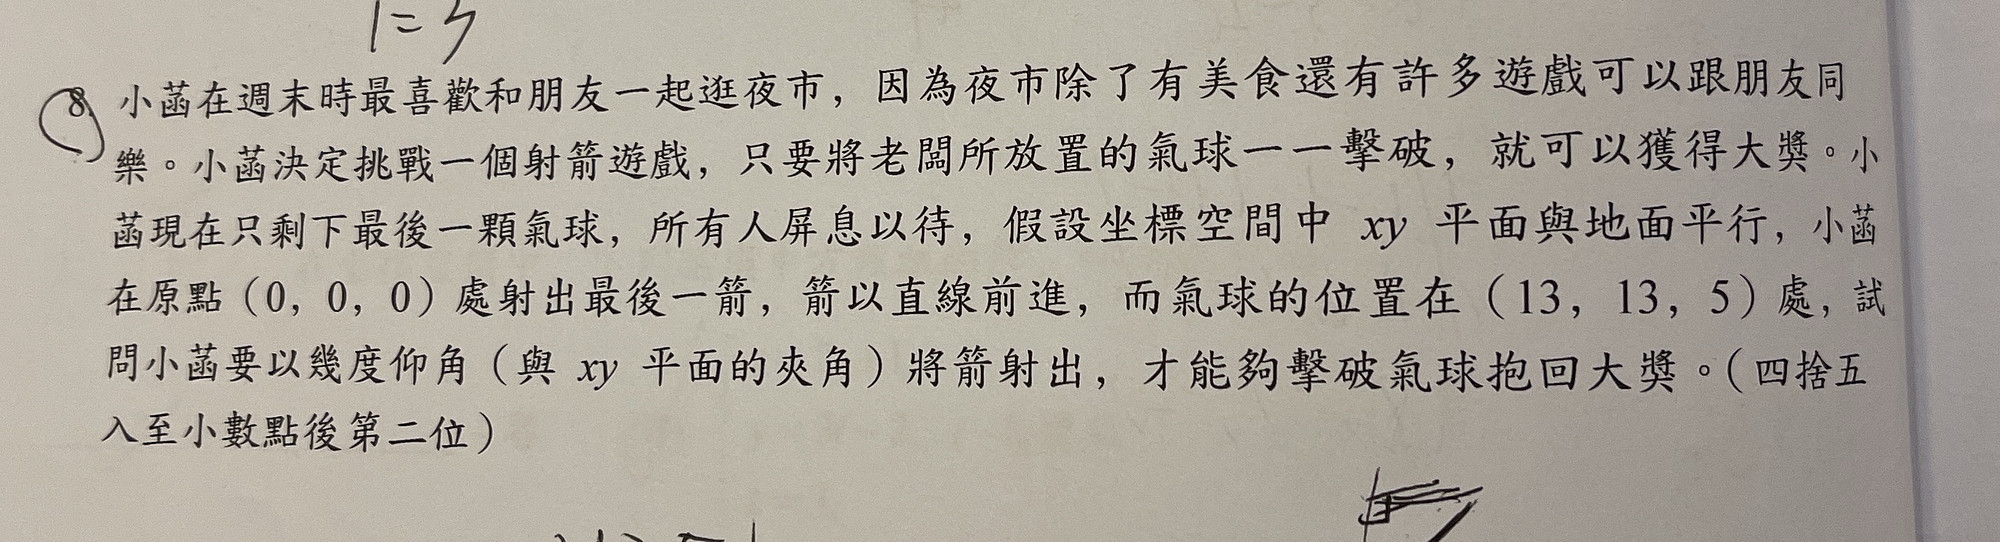 1=3
8. 小菡在週末時最喜歡和朋友一起逛夜市，因為夜市除了有美食還有許多遊戲可以跟朋友同
樂。小菡決定挑戰一個射箭遊戲，只要將老闆所放置的氣球一一擊破，就可以獲得大獎。小
菡現在只剩下最後一顆氣球，所有人屏息以待，假設坐標空間中 xy 平面與地面平行，小菡
在原點（0，0，0）處射出最後一箭，箭以直線前進，而氣球的位置在（13，13，5）處，試
問小菡要以幾度仰角（與 xy 平面的夾角）將箭射出，才能夠擊破氣球抱回大獎。（四捨五
入至小數點後第二位）